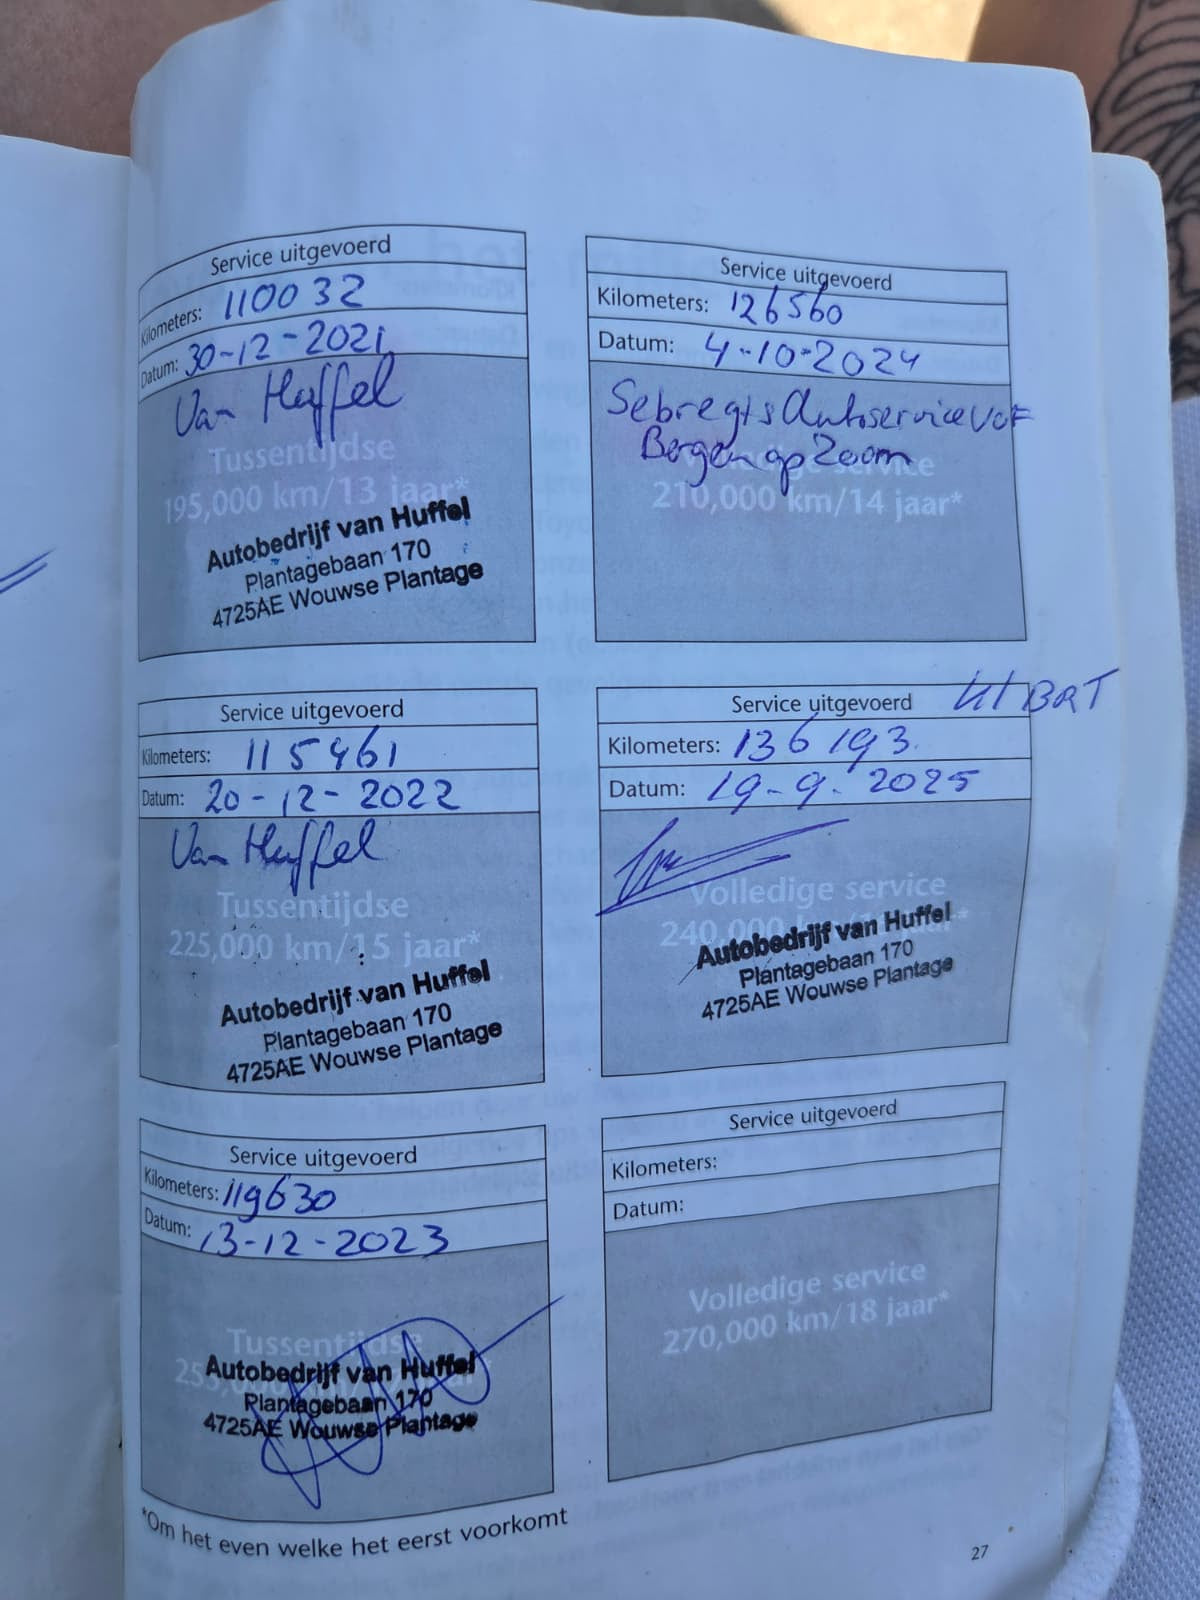 Service uitgevoerd
Kilometers: 110032
Datum: 30-12-2021
Van Huffel
Tussentijdse
195,000 km/13 jaar*
Autobedrijf van Huffel
Plantagebaan 170
4725AE Wouwse Plantage
Service uitgevoerd
Kilometers: 115461
Datum: 20-12-2022
Van Huffel
Tussentijdse
225,000 km/15 jaar*
Autobedrijf van Huffel
Plantagebaan 170
4725AE Wouwse Plantage
Service uitgevoerd
Kilometers: 119630
Datum: 13-12-2023
Tussentijdse
Autobedrijf van Huffel
Plantagebaan 170
4725AE Wouwse Plantage
*Om het even welke het eerst voorkomt
Service uitgevoerd
Kilometers: 126560
Datum: 4-10-2024
Sebregts Autoservice VOF
Bergen op Zoom
Volledige service
210,000 km/14 jaar*
Service uitgevoerd
Kilometers: 136193.
Datum: 19-9-2025
Volledige service
240,000
Autobedrijf van Huffel
Plantagebaan 170
4725AE Wouwse Plantage
Service uitgevoerd
Kilometers:
Datum:
Volledige service
270,000 km/18 jaar*
27